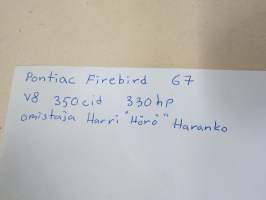 Pontiac Firebird 67
V8 350cid 330hp
omistaja Harri "Hörö" Haranko